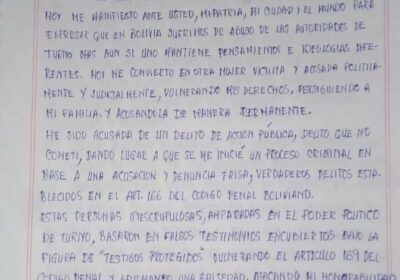 HOY ME MANIFIESTO ANTE USTED, MI PATRIA, MI CIUDAD Y EL MUNDO PARA
EXPRESAR QUE EN BOLIVIA SUFRIMOS DE ABUSO DE LAS AUTORIDADES DE
TURNO MAS AUN SI UNO MANTIENE PENSAMIENTOS E IDEOLOGIAS DIFE-
RENTES. HOY ME CONVIERTO EN OTRA MUJER VICTIMA Y ACUSADA POLITICA-
MENTE Y JUDICIALMENTE, VULNERANDO MIS DERECHOS, PERSIGUIENDO A
MI FAMILIA. Y ACUSANDOLA DE MANERA PERMANENTE.
HE SIDO ACUSADA DE UN DELITO DE ACCIÓN PÚBLICA, DELITO QUE NO
COMETI, DANDO LUGAR A QUE SE ME INICIÉ UN PROCESO CRIMINAL EN
BASE A UNA ACUSACION Y DENUNCIA FALSA, VERDADEROS DELITOS ESTA-
BLECIDOS EN EL ART. 166 DEL CODIGO PENAL BOLIVIANO.
ESTAS PERSONAS INESCRUPULOSAS, AMPARADAS EN EL PODER POLITICO
DE TURNO, BASARON EN FALSOS TESTIMONIOS ENCUBIERTOS BAJO LA
FIGURA DE "TESTIGOS PROTEGIDOS" VULNERANDO EL ARTICULO 169 DEL
CODIGO PENAL Y AFIRMANDO UNA FALSEDAD, ATACANDO MI HONORABILIDAD